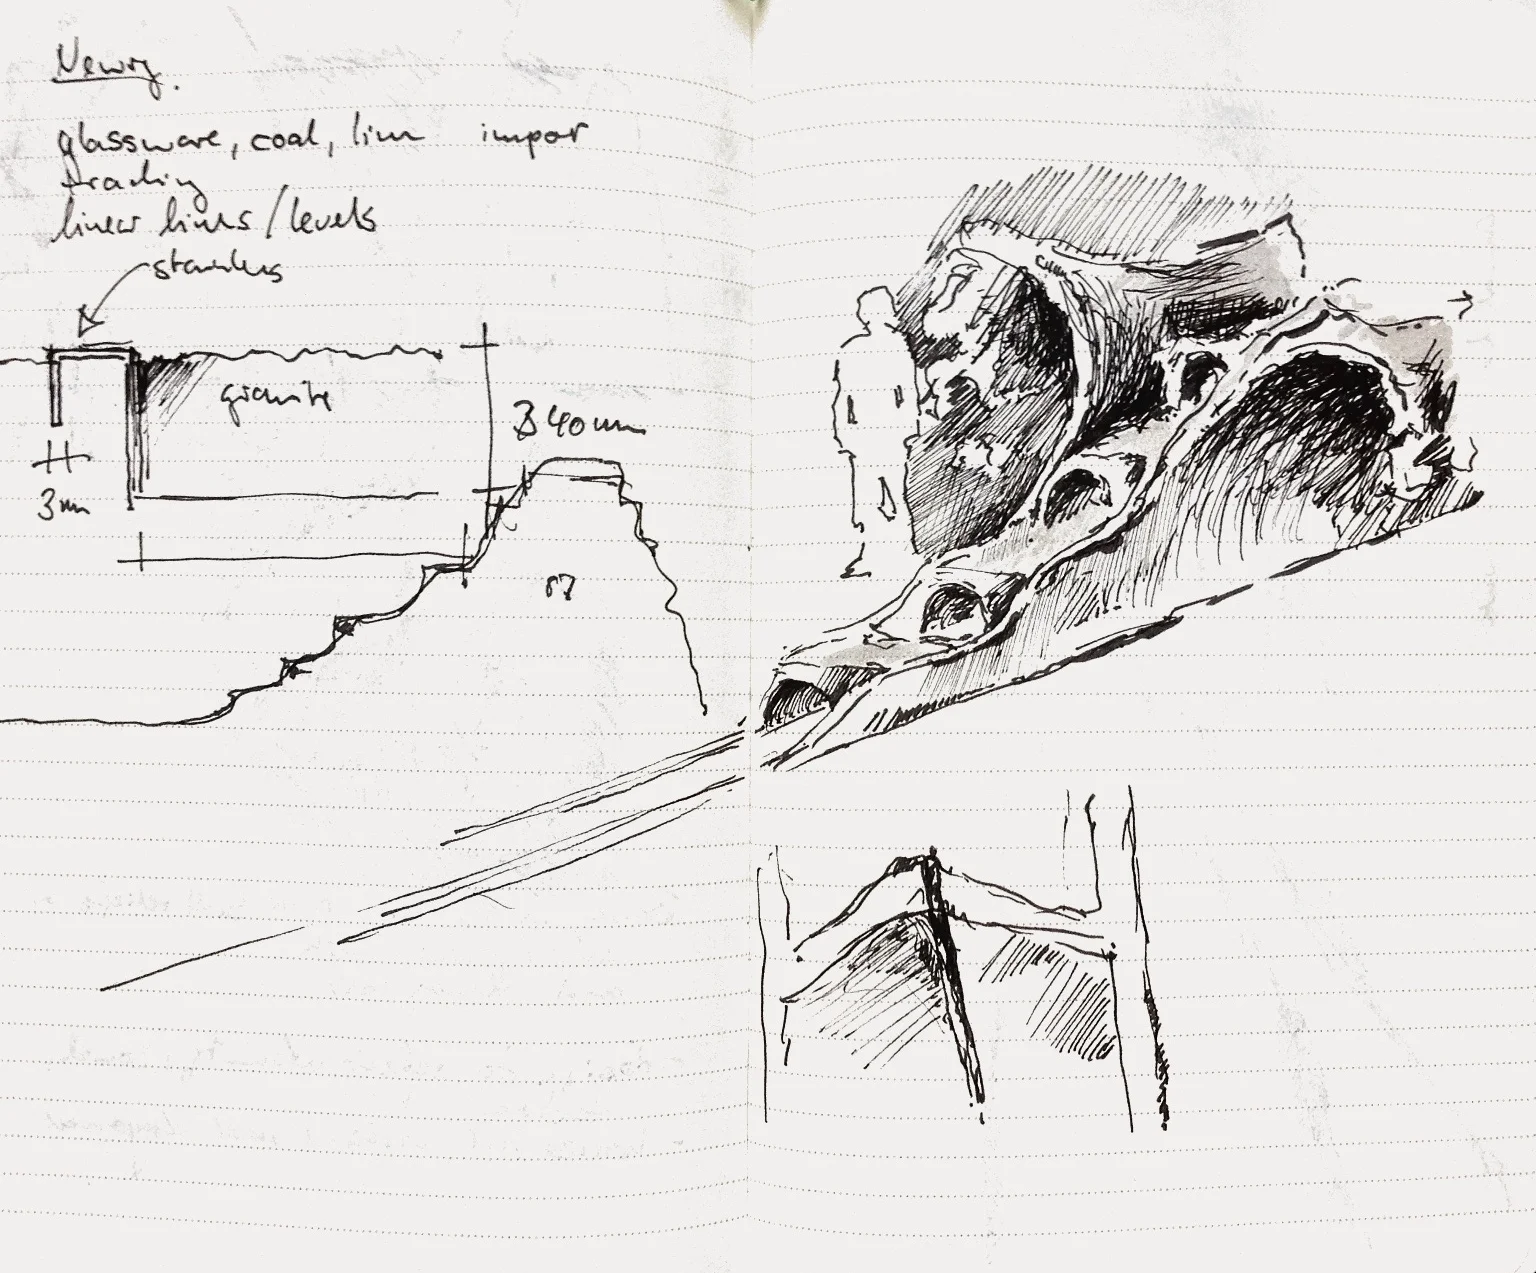 Newry.
glassware, coal, lim impor
trading
linear links / levels
stainless
granite
340mm
3mm